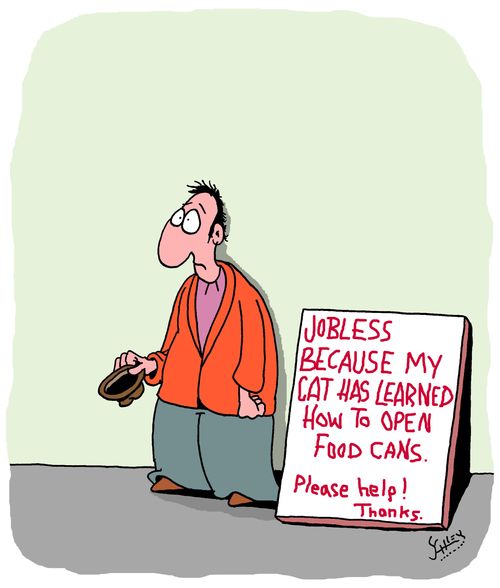 JOBLESS
BECAUSE MY
CAT HAS LEARNED
HOW TO OPEN
FOOD CANS.
Please help!
Thanks.
SCHLEY